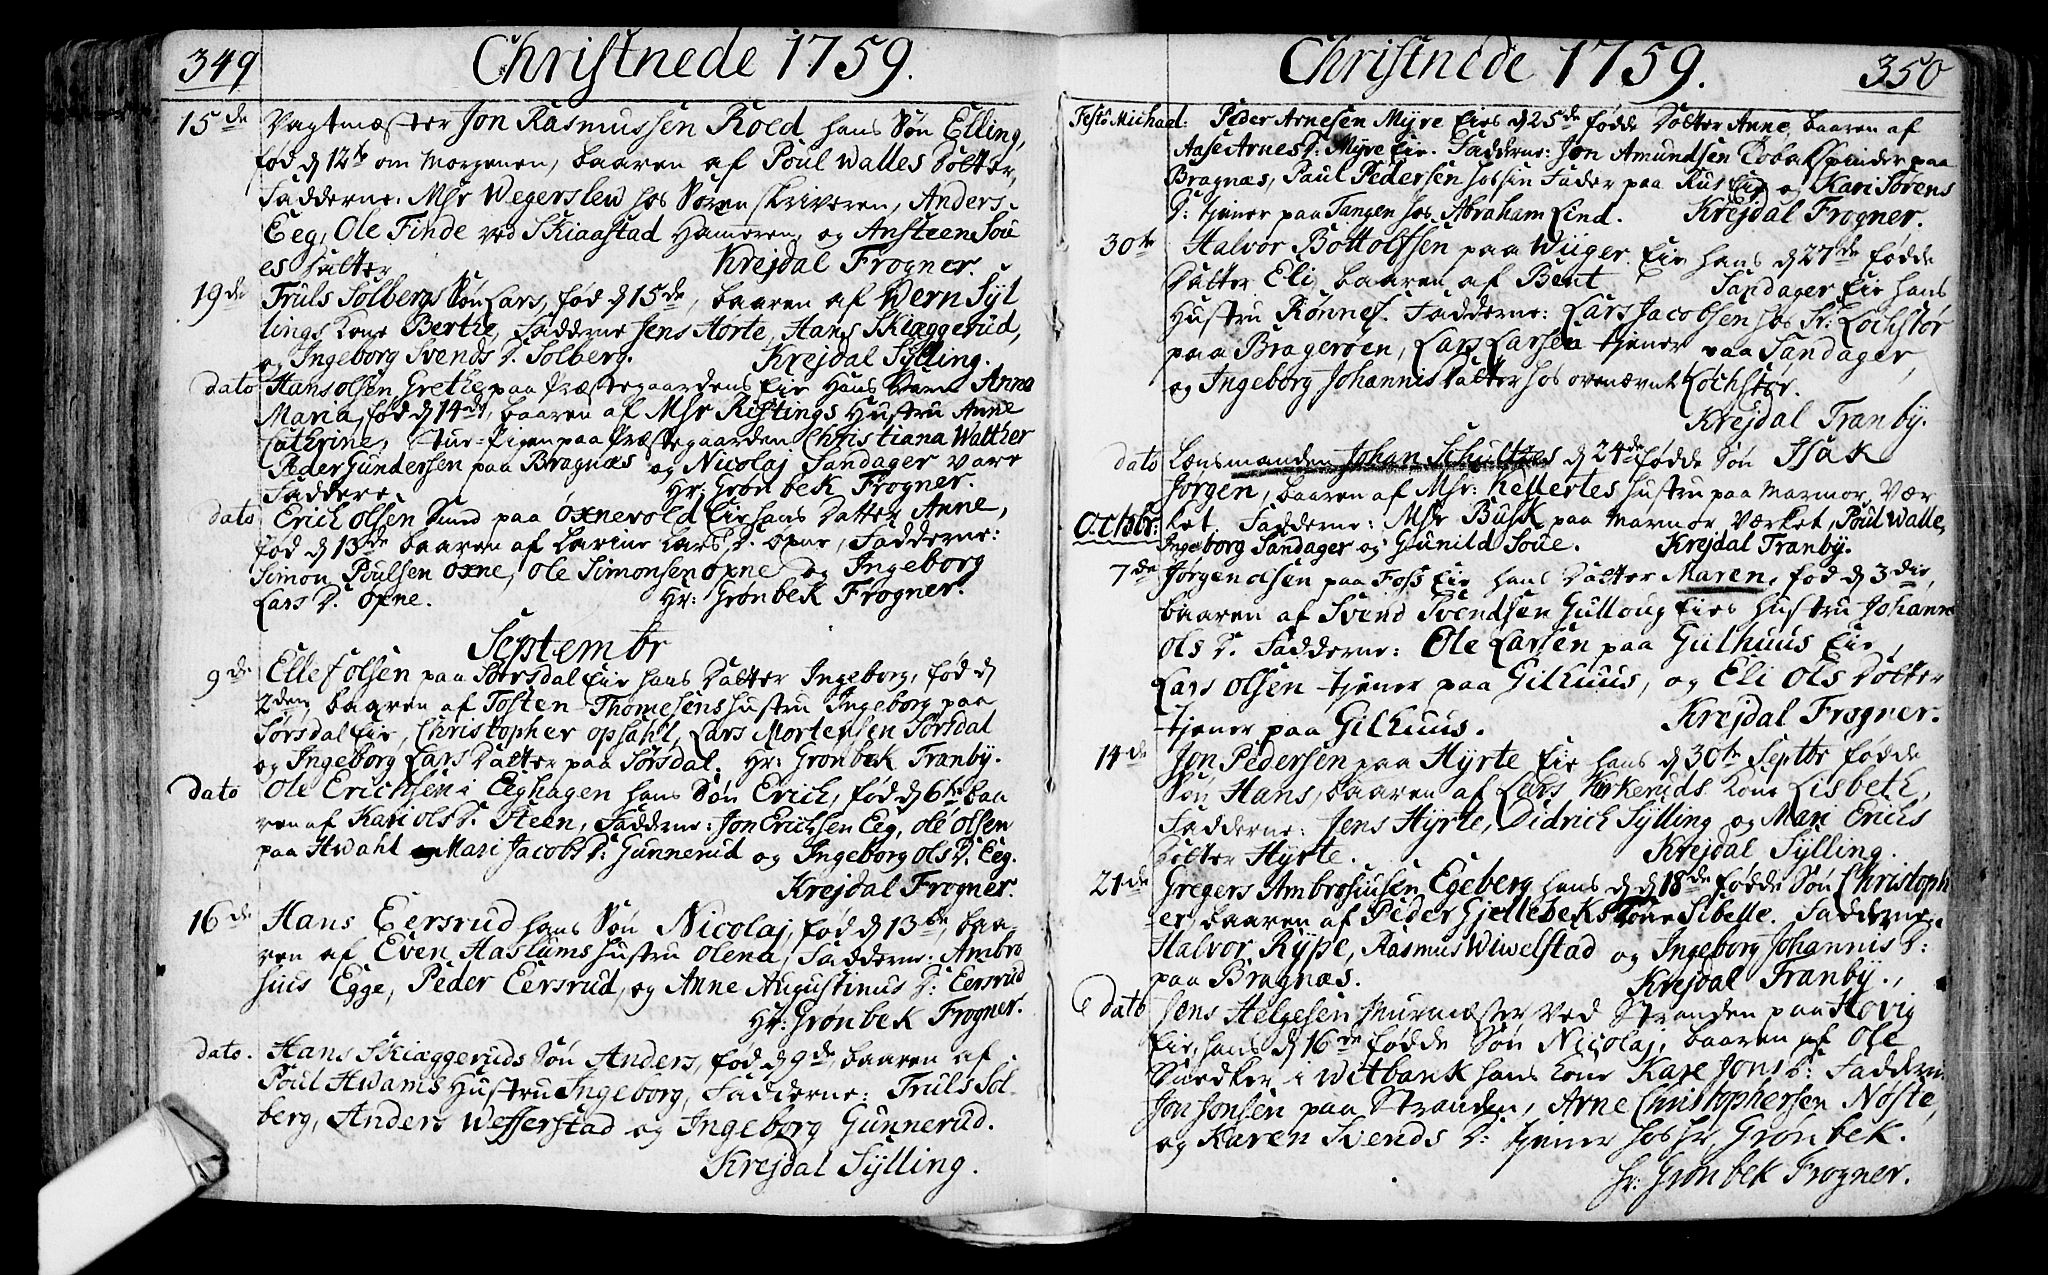 349
Christnede 1759.
15de Vagtmæster Jon Rasmussen Roed hans Søn Elling,
fød d 12te om Morgenen, baaren af Poul Walles Dotter,
Fadderne: Msr Wegerslew hos Soren skriveren, Anders
Eeg, Ole Finde ved Skiaastad Hameren, og Ansteen Sou
es Datter Krejdal Frogner.
19de Truls Solbergs Søn Lars, fød d 15de, baaren af Wern Syl
lings Kone Berthe, Fadderne Jens Horte, Hans Skiæggerud,
og Ingeborg Svends D. Solberg. Krejdal Sylling.
dato Hans Olsen Grethe paa Præstegaardens Eie Hans Barn Anna
Maria, fød d 14de, baaren af Msr Ristings Hustru Anne
Cathrine, Stue-Pigen paa Præstegaarden Christiana Walther
Peder Gundersen paa Bragnæs og Nicolaj Sandager vare
Faddere. Hr: Grønbek Frogner.
dato Erich Olsen Smed paa Oxnevold Eie hans Datter Anne,
fød d 13de baaren af Karine Lars D. Oxne, Fadderne:
Simon Poulsen Oxne, Ole Simonsen Oxne og Ingeborg
Lars D. Oxne. Hr: Grønbek Frogner.
Septembr
9de Ellef Olsen paa Sørsdal Eie hans Datter Ingeborg, fød d
2den, baaren af Tosten Thomesens Hustru Ingeborg paa
Sørsdal Eie, Christopher Opsahl, Lars Mortensen Sørsdal
og Ingeborg Lars Datter paa Sørsdal. Hr: Grønbek Tranby.
dato Ole Erichsen i Eeghagen hans Søn Erich, fød d 6te baa
ren af Kari Ols D. Steen, Fadderne: Jon Erichsen Eeg, Ole Olsen
paa Hwahl Mari Jacobs D: Gunnerud og Ingeborg Ols D. Eeg.
Krejdal Frogner.
16de Hans Eersrud hans Søn Nicolaj, fød d 13de, baa
ren af Even Haslums Hustru Olena, Fadderne: Ambro
sius Egge, Peder Eersrud, og Anne Augustinus D: Eersrud
Hr: Grønbek Frogner.
dato. Hans Skiæggeruds Søn Anders, fød d 9de, baaren af
Poul Hwams Hustru Ingeborg, Fadderne: Truls Sol-
berg, Anders Wefferstad og Ingeborg Gunnerud.
Krejdal Sylling.
350
Christnede 1759.
Festo Michael: Peder Arnesen Myre Eies d 25de fødde Datter Anne, baaren af
Aase Arnes D: Myre Eie. Fadderne: Jon Amundsen Tobakspinder paa
Bragnæs, Paul Pedersen hos sin Fader paa Rus Eie og Kari Sørens
D: tjener paa Tangen hos Abraham Lind. Krejdal Frogner.
30te Halvor Bottolfsen paa Wiiger Eie hans d 27de fødde
Datter Eli, baaren af Bent Sandager Eie hans
Hustru Rønnef. Fadderne: Lars Jacobsen hos Sr: Kochstør
paa Bragerøen, Lars Larsen tjener paa Sandager,
og Ingeborg Johannis Datter hos ovenævnt Kochstør.
Krejdal Tranby.
dato Lænsmanden Johan Schultzes d 24de fødde Søn Isak
Jørgen, baaren af Msr: Kellertes Hustru paa Marmor Vær
ket. Fadderne: Msr Busk paa Marmor Værket, Poul Walle,
Ingeborg Sandager og Gunild Soue. Krejdal Tranby.
Octobr:
7de Jørgen Olsen paa Foss Eie hans Datter Maren, fød d 3die,
baaren af Svend Svendsen Gulloug Eies Hustru Johanne
Ols D. Fadderne: Ole Larsen paa Gilhuus Eie,
Lars Olsen tjener paa Gilhuus, og Eli Ols Datter
tjener paa Gilhuus. Krejdal Frogner.
14de Jon Pedersen paa Hyrte Eie hans d 30te Septbr fødde
Søn Hans, baaren af Lars Kirkeruds Kone Lisbeth,
Fadderne: Jens Hyrte, Didrich Sylling og Mari Erichs
Datter Hyrte. Krejdal Sylling.
21de Gregers Ambrosiusen Egeberg hans d d 18de fødde Søn Christoph
er, baaren af Peder Gjellebeks Kone Sibelle. Fadderne:
Halvor Rype, Rasmus Wiwelstad og Ingeborg Johannis D:
paa Bragnæs. Krejdal Tranby.
dato Jens Helgesen Murmæster ved Stranden paa Hovig
Eie, hans d 16de fødde Søn Nicolaj, baaren af Ole
Snedker i Witbank hans Kone Kare Jons D: Fadderne
Jon Jonsen paa Stranden, Arne Christophersen Nøste,
og Karen Svends D: tjener hos Hr. Grønbek.
Hr: Grønbek Frogner.